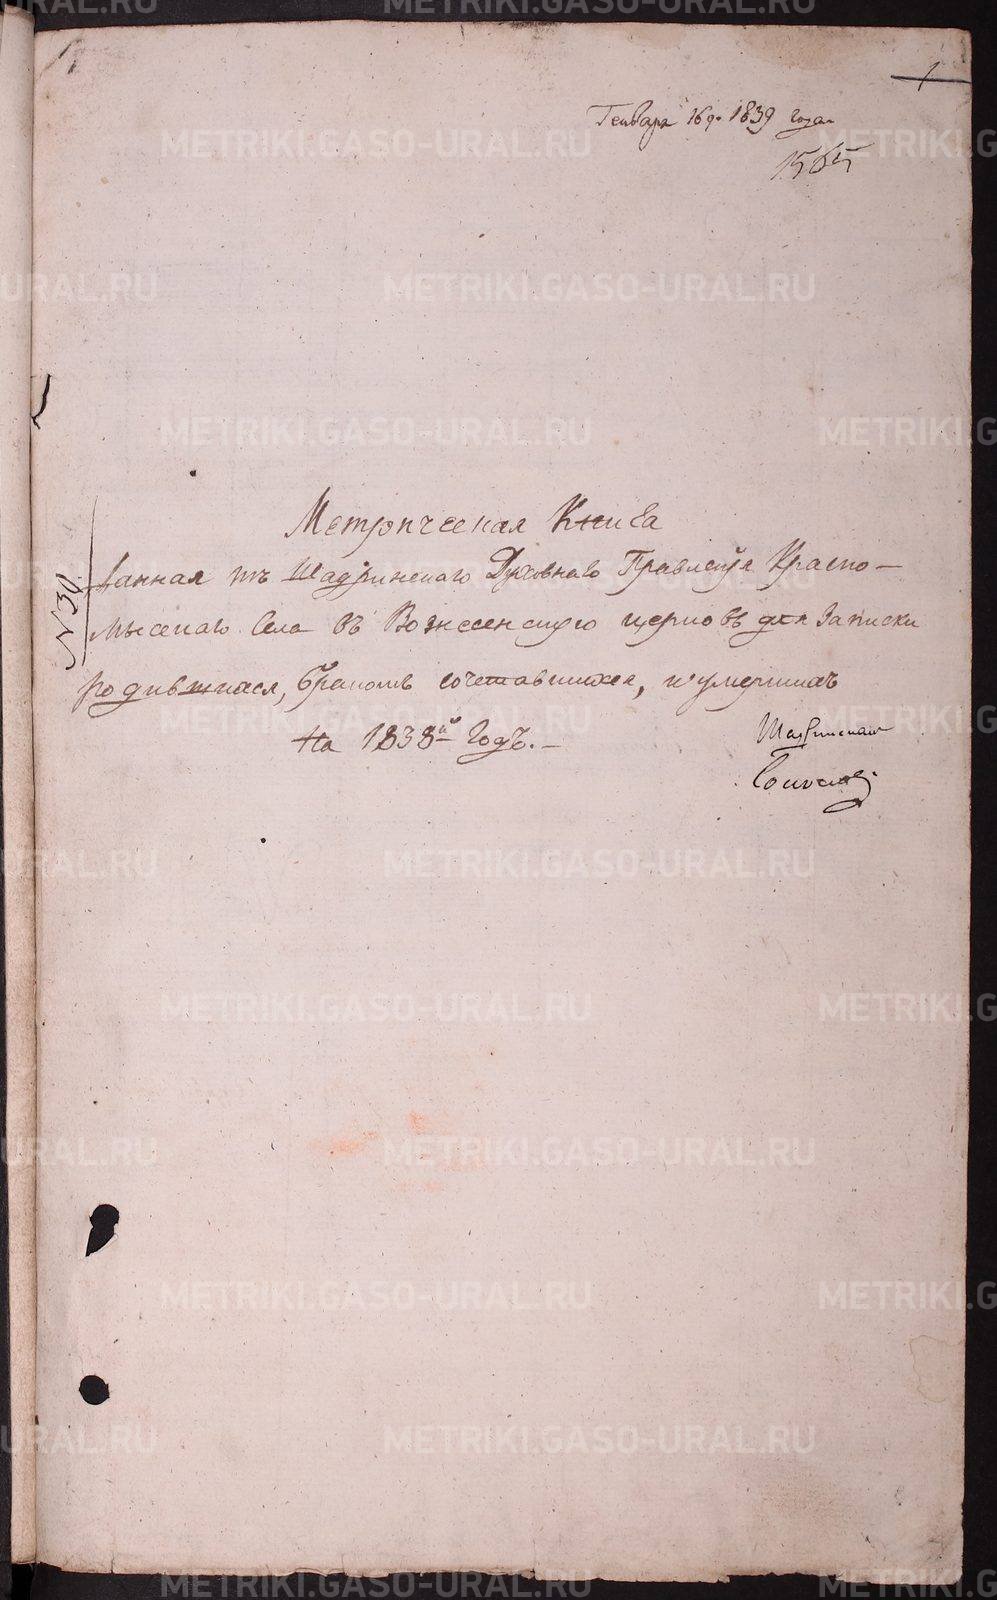 1
Генваря 16 д. 1839 года
1565
Метрическая Книга
№ 30.
данная изъ Шадринскаго Духовнаго Правленія Красно-
мысскаго Села въ Вознесенскую церковь для Записки
родившихся, бракомъ сочетавшихся, и умершихъ
На 1838й Годъ. —
METRIKI.GASO-URAL.RU